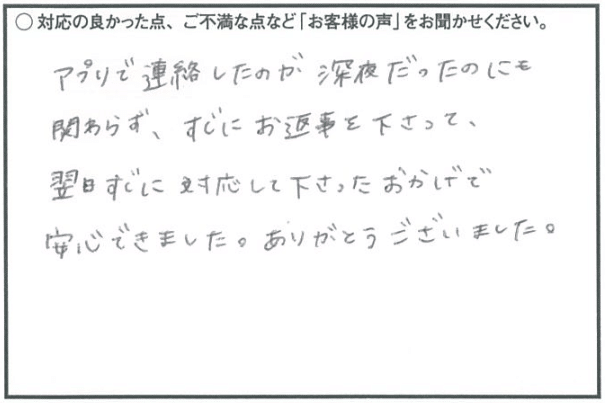 ○ 対応の良かった点、ご不満な点など「お客様の声」をお聞かせください。
アプリで連絡したのが深夜だったのにも
関わらず、すぐにお返事を下さって、
翌日すぐに対応して下さったおかげで
安心できました。ありがとうございました。